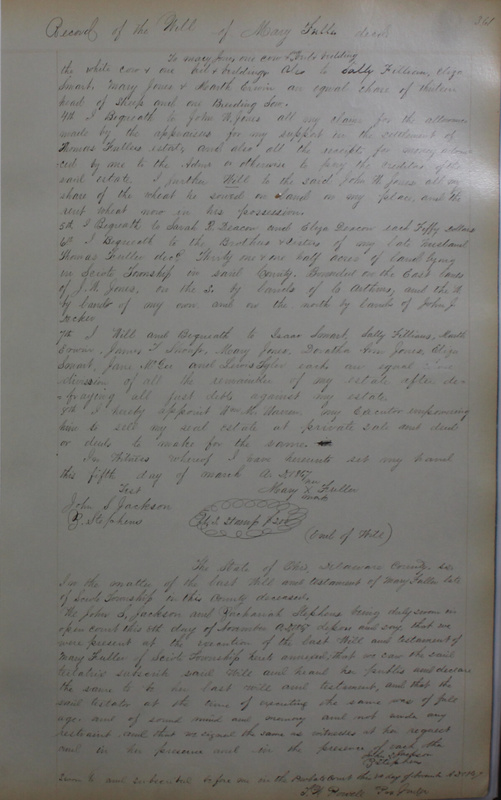 Record of the Will of Mary Fuller decd
361
To Mary Jones one cow & beds bedding
the white cow & one bed & bedding Also to Sally Filliams, Eliza
Smart, Mary Jones & North Erwin an equal share of thirteen
head of Sheep and one Breeding Sow.
4th I Bequeath to John N. Jones all my claim for the allowance
made by the appraisers for my support in the settlement of
Thomas Fullers estate, and also all the receipts for money advan
ced by me to the Admr or otherwise to pay the creditors of the
said estate. I further Will to the said John N. Jones all my
share of the wheat he sowed on land on my place, and the
rent wheat now in his possession
5th I Bequeath to Sarah D. Deacon and Eliza Deacon each Fiffty dollars
6th I Bequeath to the Brothers & Sisters of my late Husband
Thomas Fuller decd Thirty one & one half acres of Land lying
in Scioto Township in said County. Bounded on the East lands
of J. N. Jones. on the S. by lands of and the W
by lands of my own and on the north by lands of John J.
7th I Will and Bequeath to Isaac Smart, Sally Filliams,
James T. Mary Jones, Ann Jones, Eliza
Smart, Jane McGee and Lewis each an equal
division of all the remainder of my estate after de
fraying all just debts against my estate.
8th I hereby appoint Wm. M. my Executor empowering
him to sell my real estate at private sale and deed
or deeds to make for the same.
In Witness whereof I have hereunto set my hand
this fifth day of march A.D. 1867
Test Mary X Fuller
John S. Jackson mark
B. Stephens U.S. Stamp
(End of Will)
The State of Ohio, Delaware County. ss.
In the matter of the last Will and testament of Mary Fuller late
of Scioto Township in this County deceased.
We John S. Jackson and Buchanah Stephens being duly sworn in
open court this 8th day of November A.D. 1867 depose and say that we
were present at the execution of the last Will and testament of
Mary Fuller of Scioto Township hereto annexed, that we saw the said
testatrix subscribe said Will and heard her publish and declare
the same to be her last will and testament, and that the
said testator at the time of executing the same was of full
age and of sound mind and memory and not under any
restraint and that we signed the same as witnesses at her request
and in her presence and in the presence of each other
John S. Jackson
B Stephens
Sworn to and Subscribed before me in the Probate Court this day of
T. W. Powell Pro. Judge